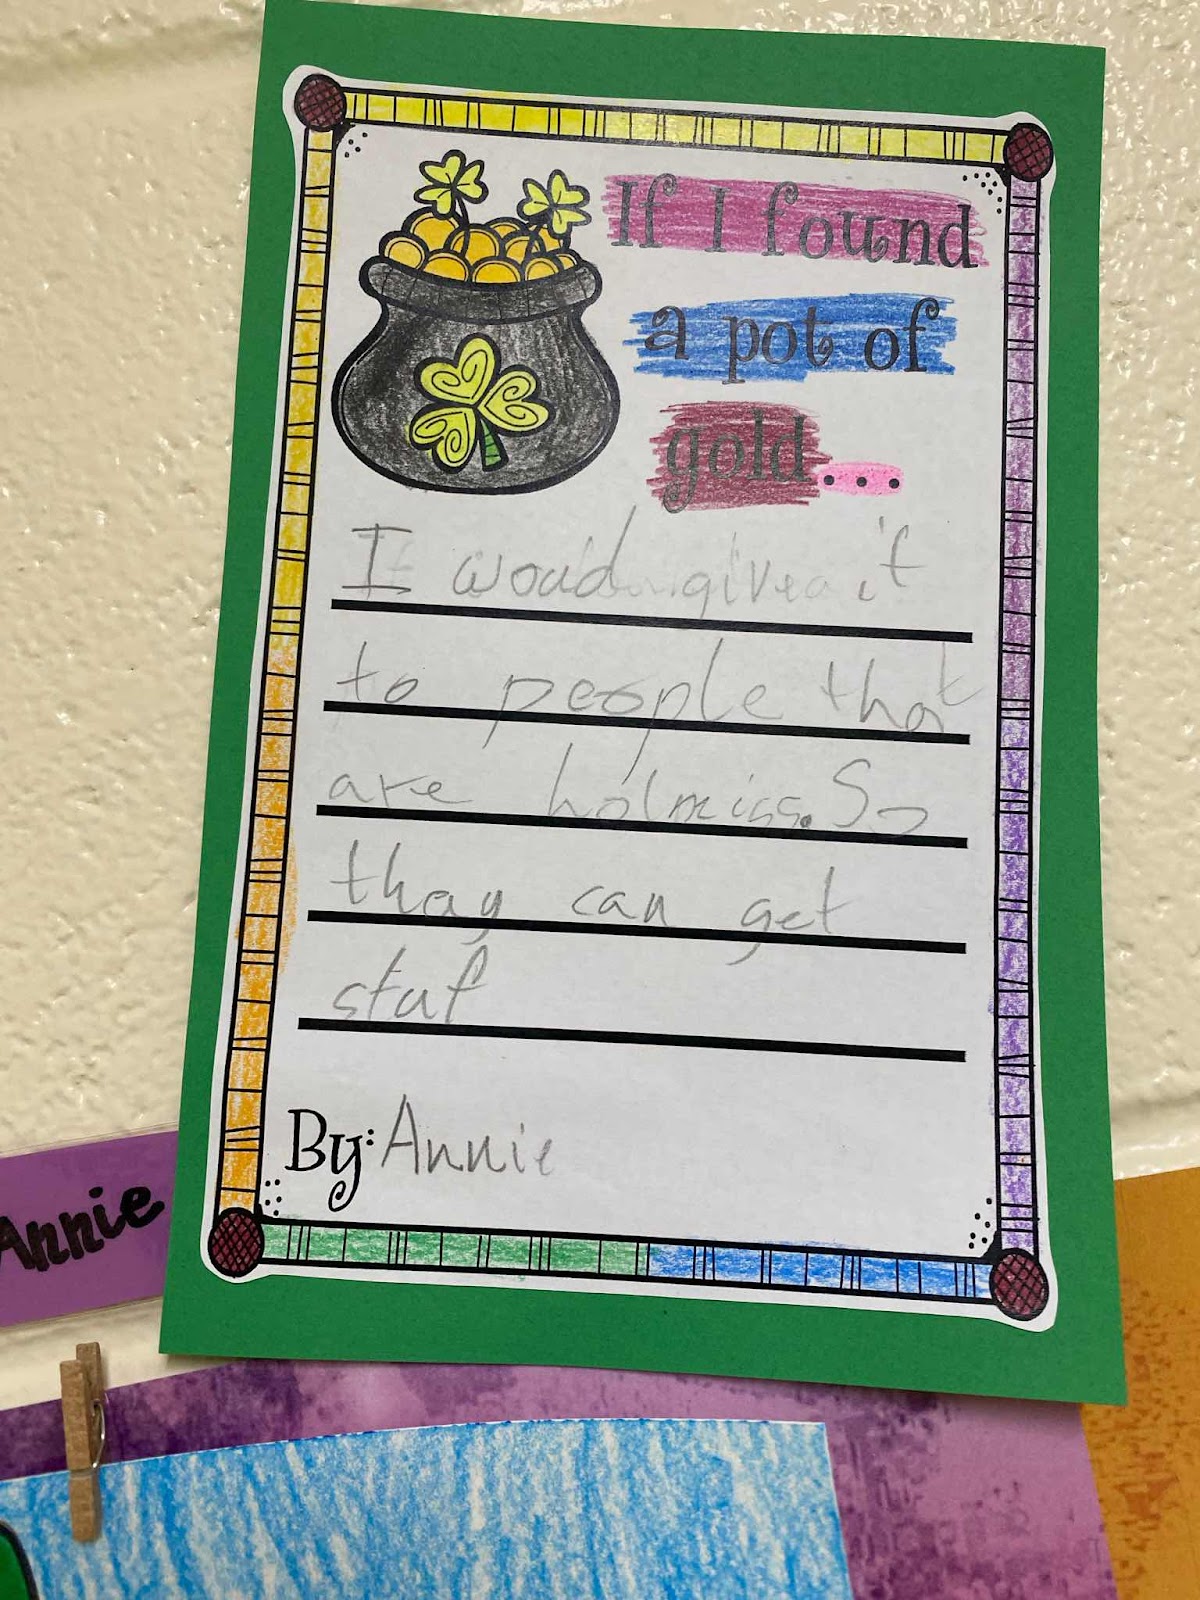 If I found
a pot of
gold...
I woud give it
to people that
are holmiss. So
thay can get
staf
By: Annie
Annie